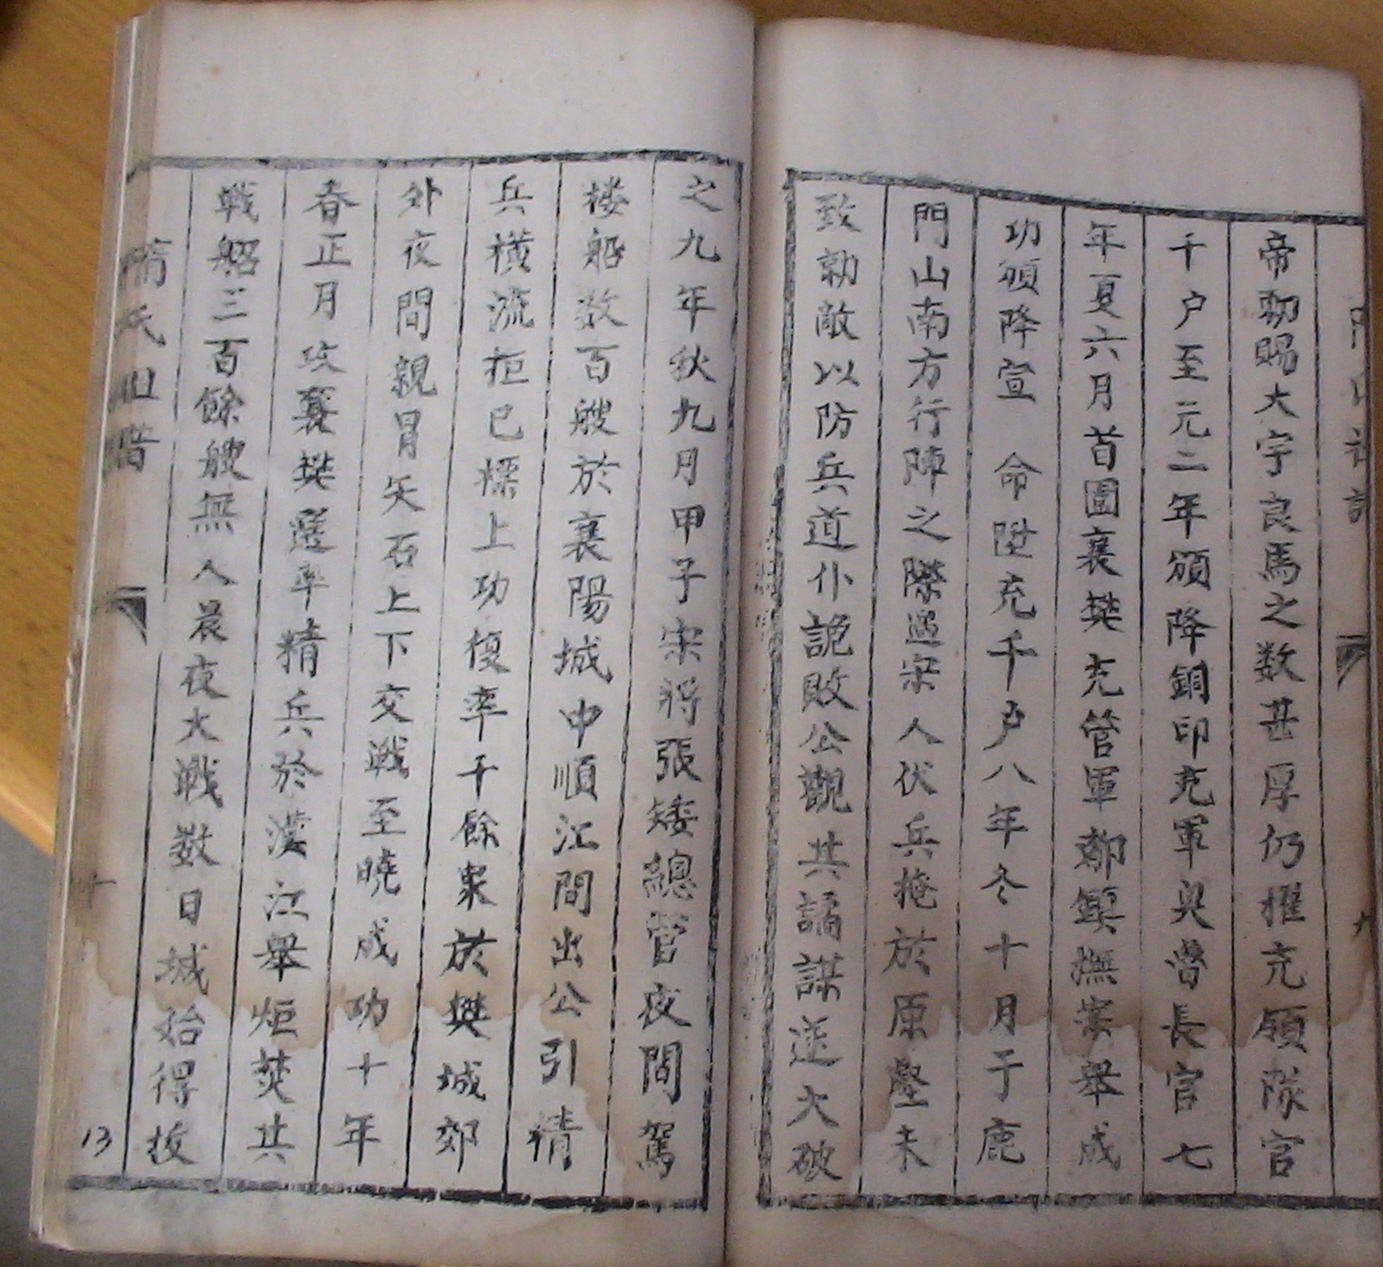 帝勅賜大宇良馬之数甚厚仍擢充領隊官
千户至元二年頒降銅印充軍與魯長官七
年夏六月首圍襄樊充管軍鄭鎮撫案舉成
功頒降宣 命陞充千户八年冬十月于鹿
門山南方行陣之際遇宋人伏兵掩於原壑未
致勍敵以防兵道仆詭敗公觀其譎謀遂大破
之九年秋九月甲子宋將張矮總管夜間駕
楼船数百艘於襄陽城中順江間出公引精
兵横流拒已標上功復率千餘衆於樊城郊
外夜間親冒矢石上下交戦至曉成功十年
春正月攻襄樊選率精兵於漢江舉炬焚其
戦船三百餘艘無人晨夜大戦数日城始得拔
隋氏世譜
13